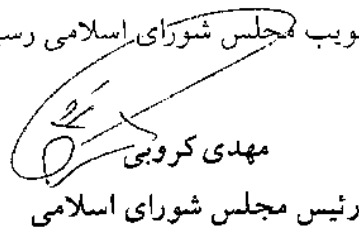 ویب مجلس شورای اسلامی رسی
مهدی کروبی
رئیس مجلس شورای اسلامی